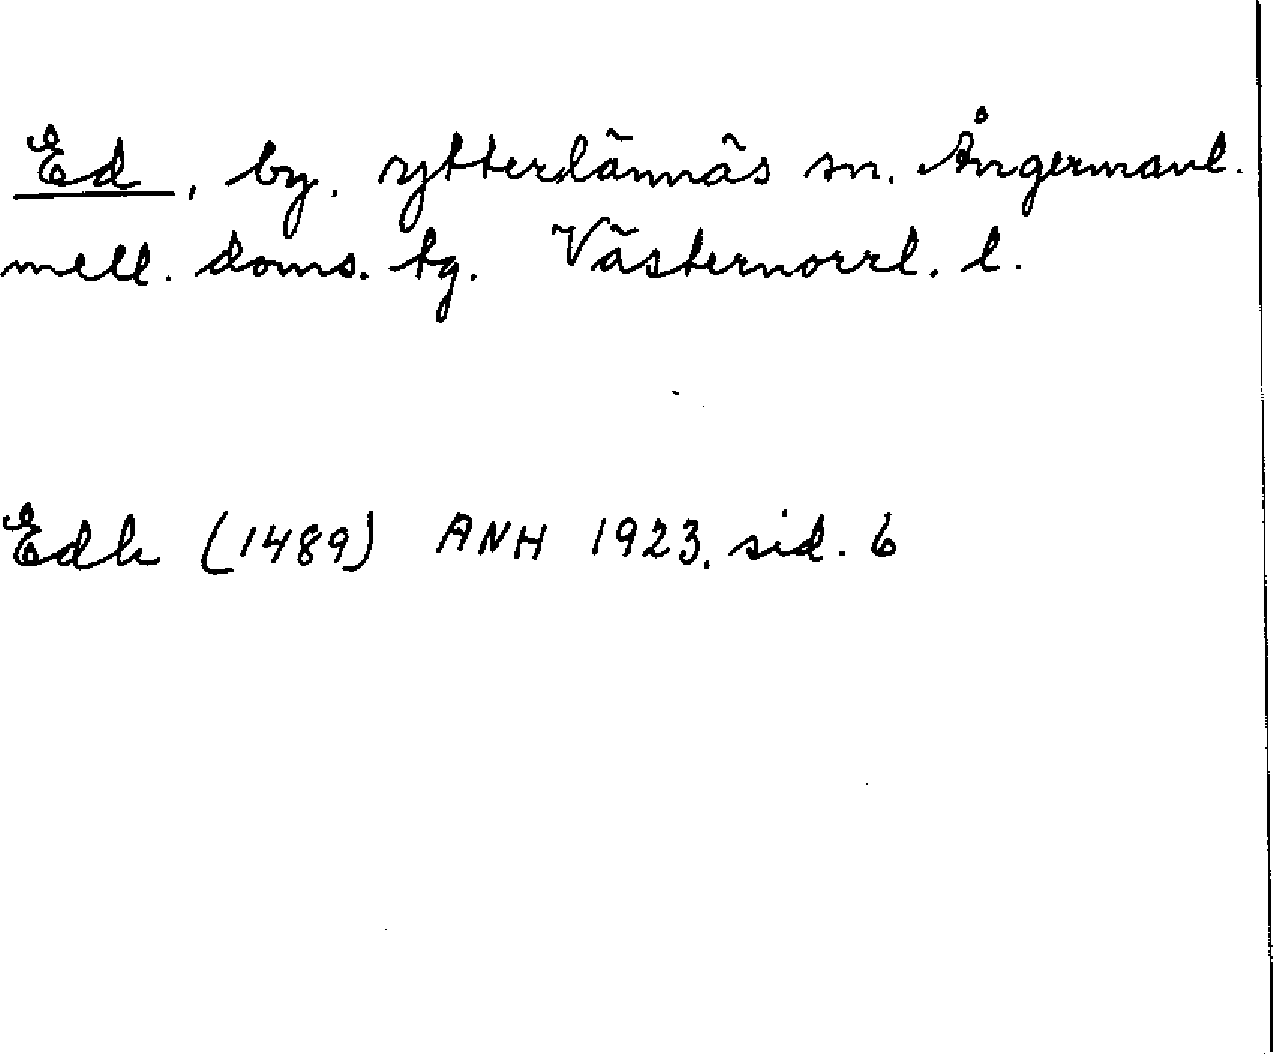 Ed, by. ytterlännäs sn. Ångermanl.
mell. doms. tg. Västernorrl. l.
Edh (1489) ANH 1923. sid. 6